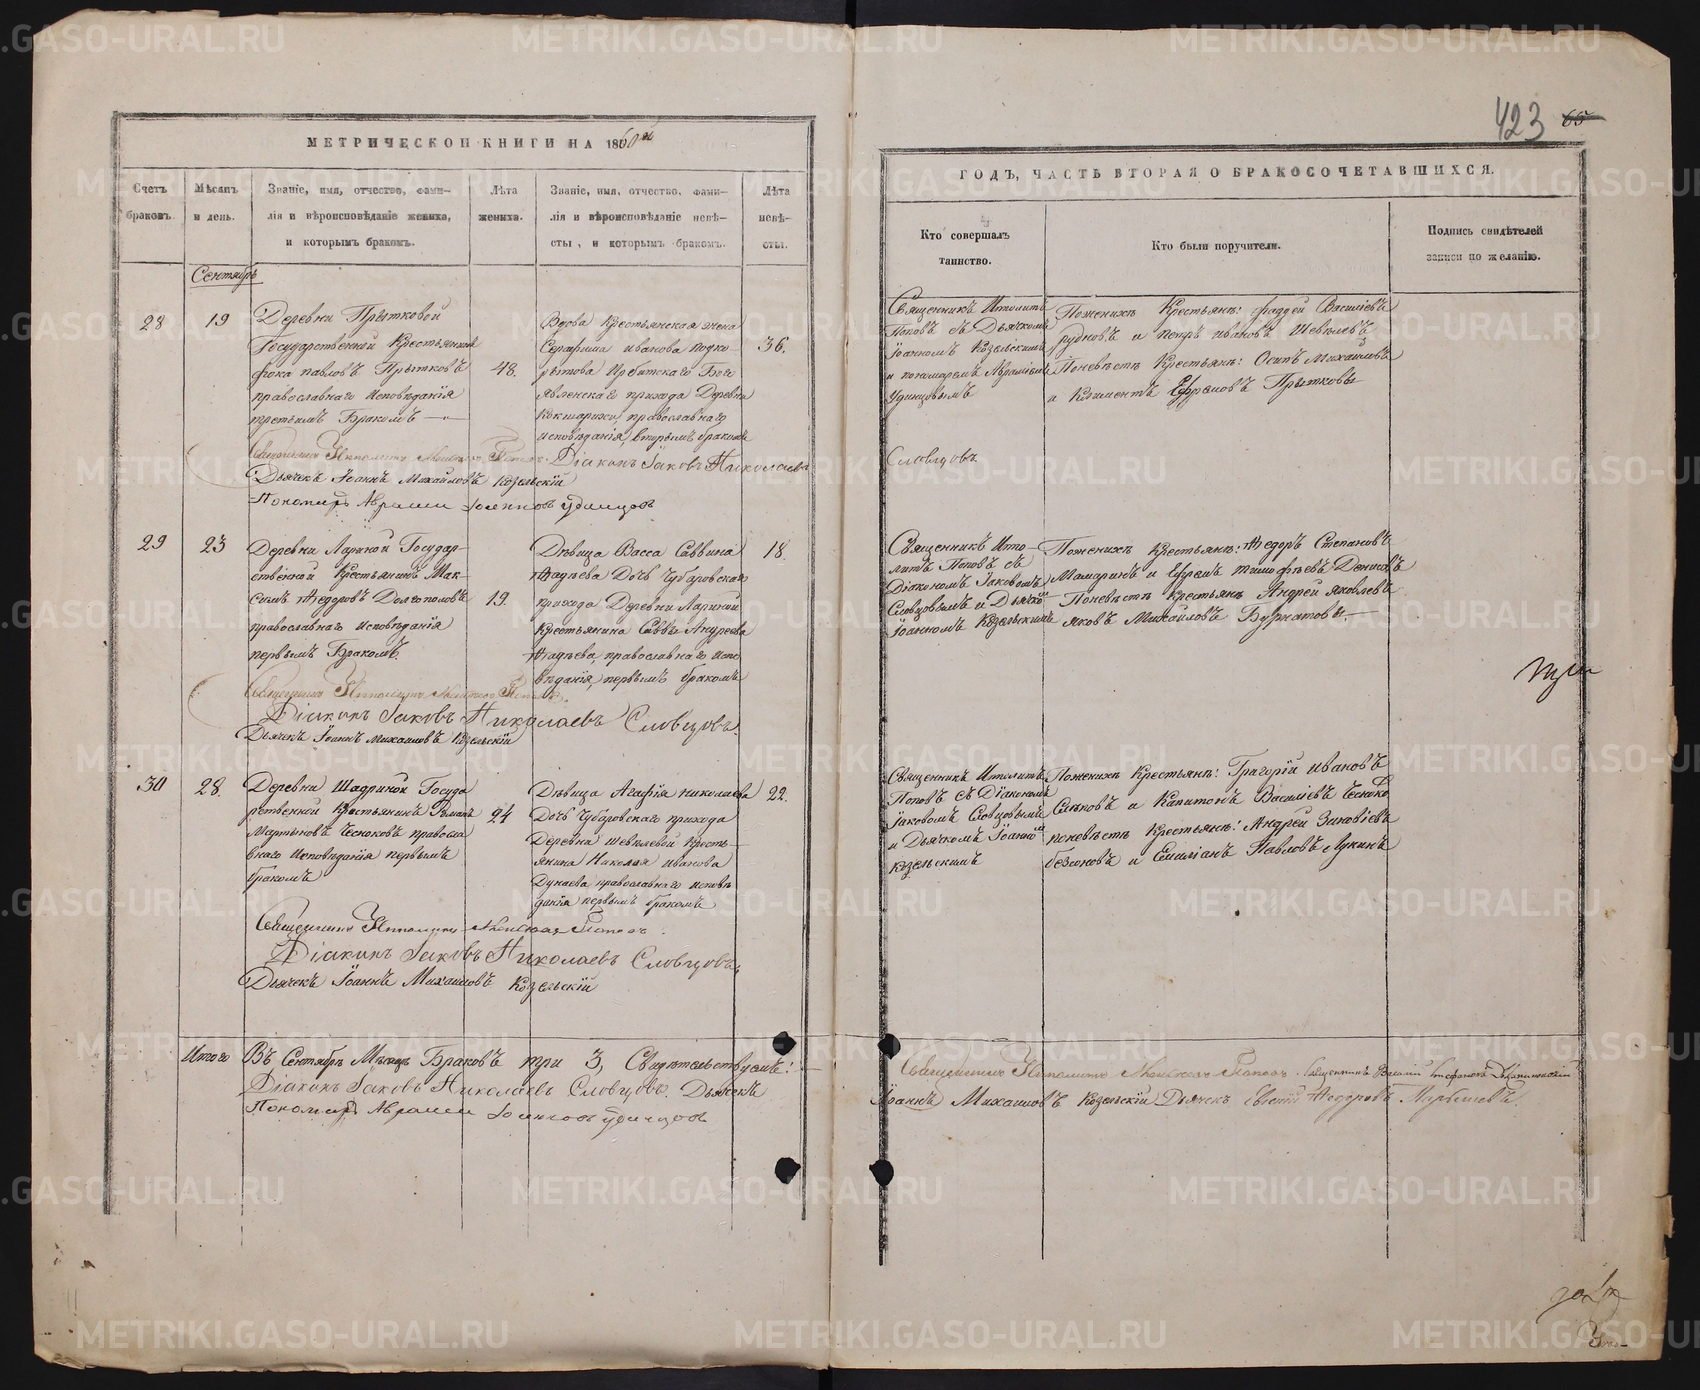 МЕТРИЧЕСКОЙ КНИГИ НА 1860й
Счетъ браковъ.
Мѣсяцъ и день.
Званіе, имя, отчество, фами-
лія и вѣроисповѣданіе жениха,
и которымъ бракомъ.
Лѣта жениха.
Званіе, имя, отчество, фами-
лія и вѣроисповѣданіе невѣ-
сты, и которымъ бракомъ.
Лѣта невѣ-
сты.
Сентябрь
28
19
Деревни Прытковой
Государственной Крестьянинъ
Фока Павловъ Прытковъ
православнаго исповѣданія
третьимъ Бракомъ
48.
Вдова Крестьянская жена
Серафима Иванова
Ирбитскаго Бого
явленскаго прихода Деревни
православнаго
исповѣданія, вторымъ бракомъ
36.
Священникъ Ипполитъ Поповъ. Діаконъ Іаковъ Николаевъ
Дьячекъ Іоаннъ Михайловъ Козельскій
Пономарь Аврамій Іоанновъ Удинцовъ
29
23
Деревни Лариной Государ-
ственной Крестьянинъ Мак-
симъ Ѳедоровъ Долгополовъ
православнаго исповѣданія
первымъ Бракомъ.
19.
Дѣвица Васса Саввина
Ѳадѣева Дочь Чубаровскаго
прихода Деревни Лариной
Крестьянина Саввы Андреева
Ѳадѣева, православнаго испо
вѣданія, первымъ бракомъ
18.
Священникъ Ипполитъ Поповъ.
Діаконъ Іаковъ Николаевъ Словцовъ.
Дьячекъ Іоаннъ Михайловъ Козельскій
30
28.
Деревни Шадриной Госуда
рственной Крестьянинъ Романъ
Мартыновъ Чесноковъ правосла
внаго исповѣданія первымъ
бракомъ
24
Дѣвица Агафія Николаева
Дочь Чубаровскаго прихода
Деревни Шевелевой Кресть-
янина Николая Иванова
Дунаева православнаго исповѣ
данія первымъ бракомъ
22.
Священникъ Ипполитъ Поповъ.
Діаконъ Іаковъ Николаевъ Словцовъ.
Дьячекъ Іоаннъ Михайловъ Козельскій
Итого Въ Сентябрѣ Мѣсяцѣ Браковъ три 3, Свидѣтельствуемъ:
Діаконъ Іаковъ Николаевъ Словцовъ. Дьячекъ
Пономарь Аврамій Іоанновъ Удинцовъ
423 65
ГОДЪ, ЧАСТЬ ВТОРАЯ О БРАКОСОЧЕТАВШИХСЯ.
Кто совершалъ
таинство.
Кто были поручители.
Подпись свидѣтелей
записи по желанію.
Священникъ Ипполитъ
Поповъ съ Дьячкомъ
Іоанномъ Козельскимъ
и пономаремъ Авраміемъ
Удинцовымъ
Поженихѣ Крестьяне: Фаддей Василіевъ
Рудновъ и Петръ Ивановъ Шевелевъ
Поневѣстѣ Крестьяне: Осипъ Михайловъ
и Климентъ Ефремовъ Прытковы
Словцовъ
Священникъ Иппо-
литъ Поповъ съ
Діакономъ Іаковомъ
Словцовымъ и Дьячко
Іоанномъ Козельскимъ
Поженихѣ Крестьяне: Ѳедоръ Степановъ
Мамаринъ и Ефремъ Тимофѣевъ Денисовъ
Поневѣстѣ Крестьяне Андрей Яковлевъ
Яковъ Михайловъ Бурматовы.
три
Священникъ Ипполитъ
Поповъ съ Діакономъ
Іаковомъ Словцовымъ
и Дьячкомъ Іоанно
Козельскимъ
Поженихѣ Крестьяне: Григорій Ивановъ
и Капитонъ Василіевъ Чесноко
поневѣстѣ Крестьяне: Андрей Зиновіевъ
и Емиліанъ Павловъ Лукинъ
Священникъ Ипполитъ Поповъ. Священникъ
Іоаннъ Михайловъ Козельскій Дьячекъ Евгеній Ѳедоровъ
METRIKI.GASO-URAL.RU